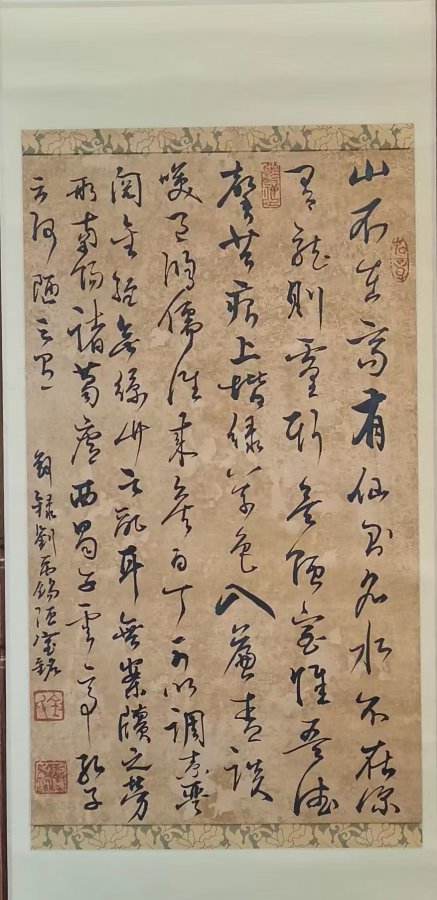 山不在高有仙則名水不在深
有龍則靈斯是陋室惟吾德
馨苔痕上堦綠草色入簾青談
笑有鴻儒往來無白丁可以調素琴
閱金經無絲竹之亂耳無案牘之勞
形南陽諸葛廬西蜀子雲亭孔子
云何陋之有
錄劉禹錫陋室銘